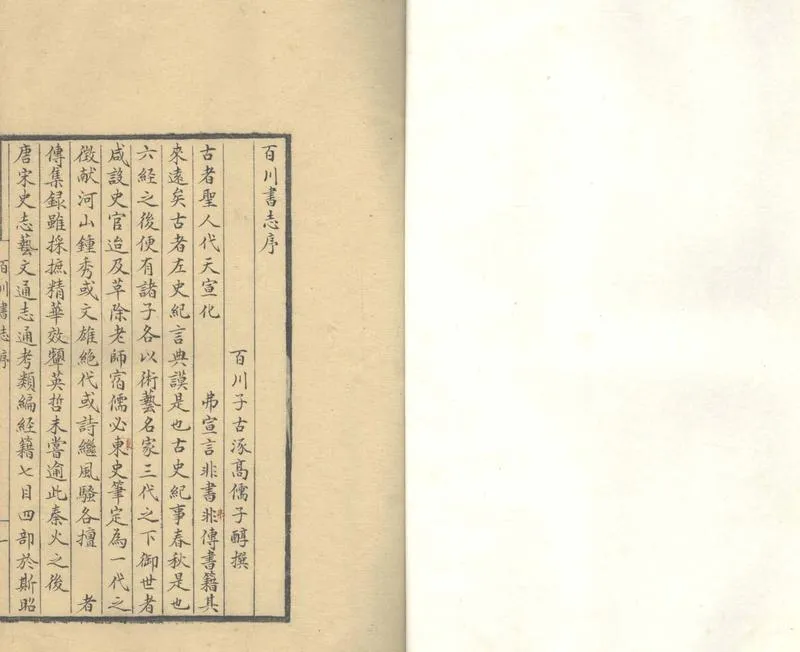 百川書志序
百川子古涿高儒子醇撰
古者聖人代天宣化 弗宣言非書非傳書籍其
來遠矣古者左史紀言典謨是也古史紀事春秋是也
六經之後便有諸子各以術藝名家三代之下御世者
咸設史官迨及草除老師宿儒必東史筆定為一代之
徵献河山鍾秀或文雄絶代或詩繼風騷各擅 者
傳集録雖採摭精華效顰英哲未嘗逾此秦火之後
唐宋史志藝文通志通考類編經籍七目四部於斯昭
百川書志序
一